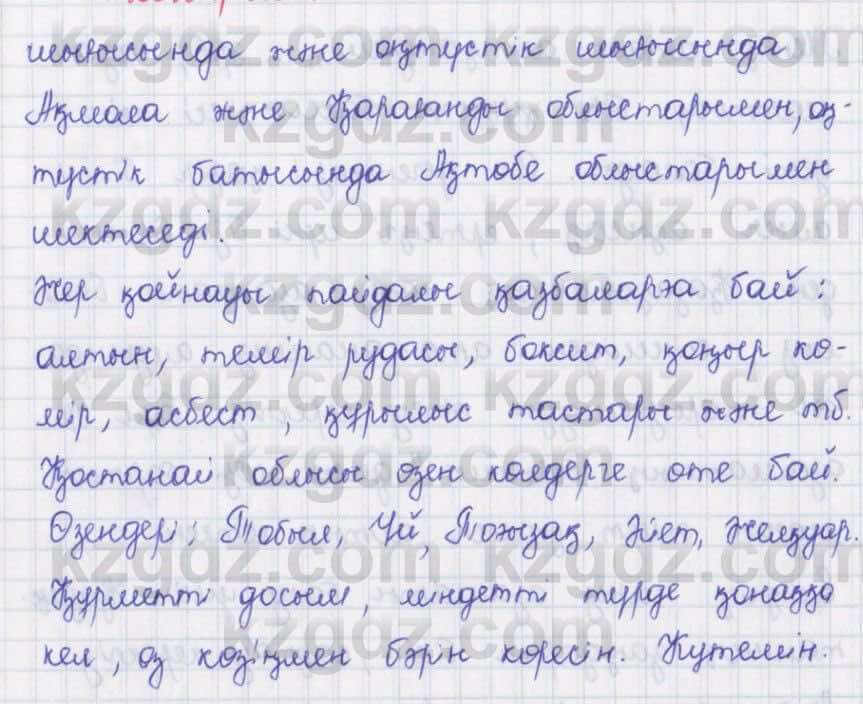 шығысында және оңтустік шығысында
Ақмола және Қарағанды облыстарымен, оң-
тустік батысында Ақтобе облыстарымен
шектеседі.
Жер қойнауы пайдалы қазбаларға бай:
алтын, темір рудасы, боксит, қоңыр ко-
мір, асбест, құрылыс тастары және тб.
Қостанай облысы өзен колдерге оте бай.
Өзендері: Тобыл, Уй, Тоғызақ, Әйет, Желқуар.
Құрметті досым, міндетті турде қонаққа
кел, оз козіңмен бәрін коресін. Кутемін.
kzgdz.com